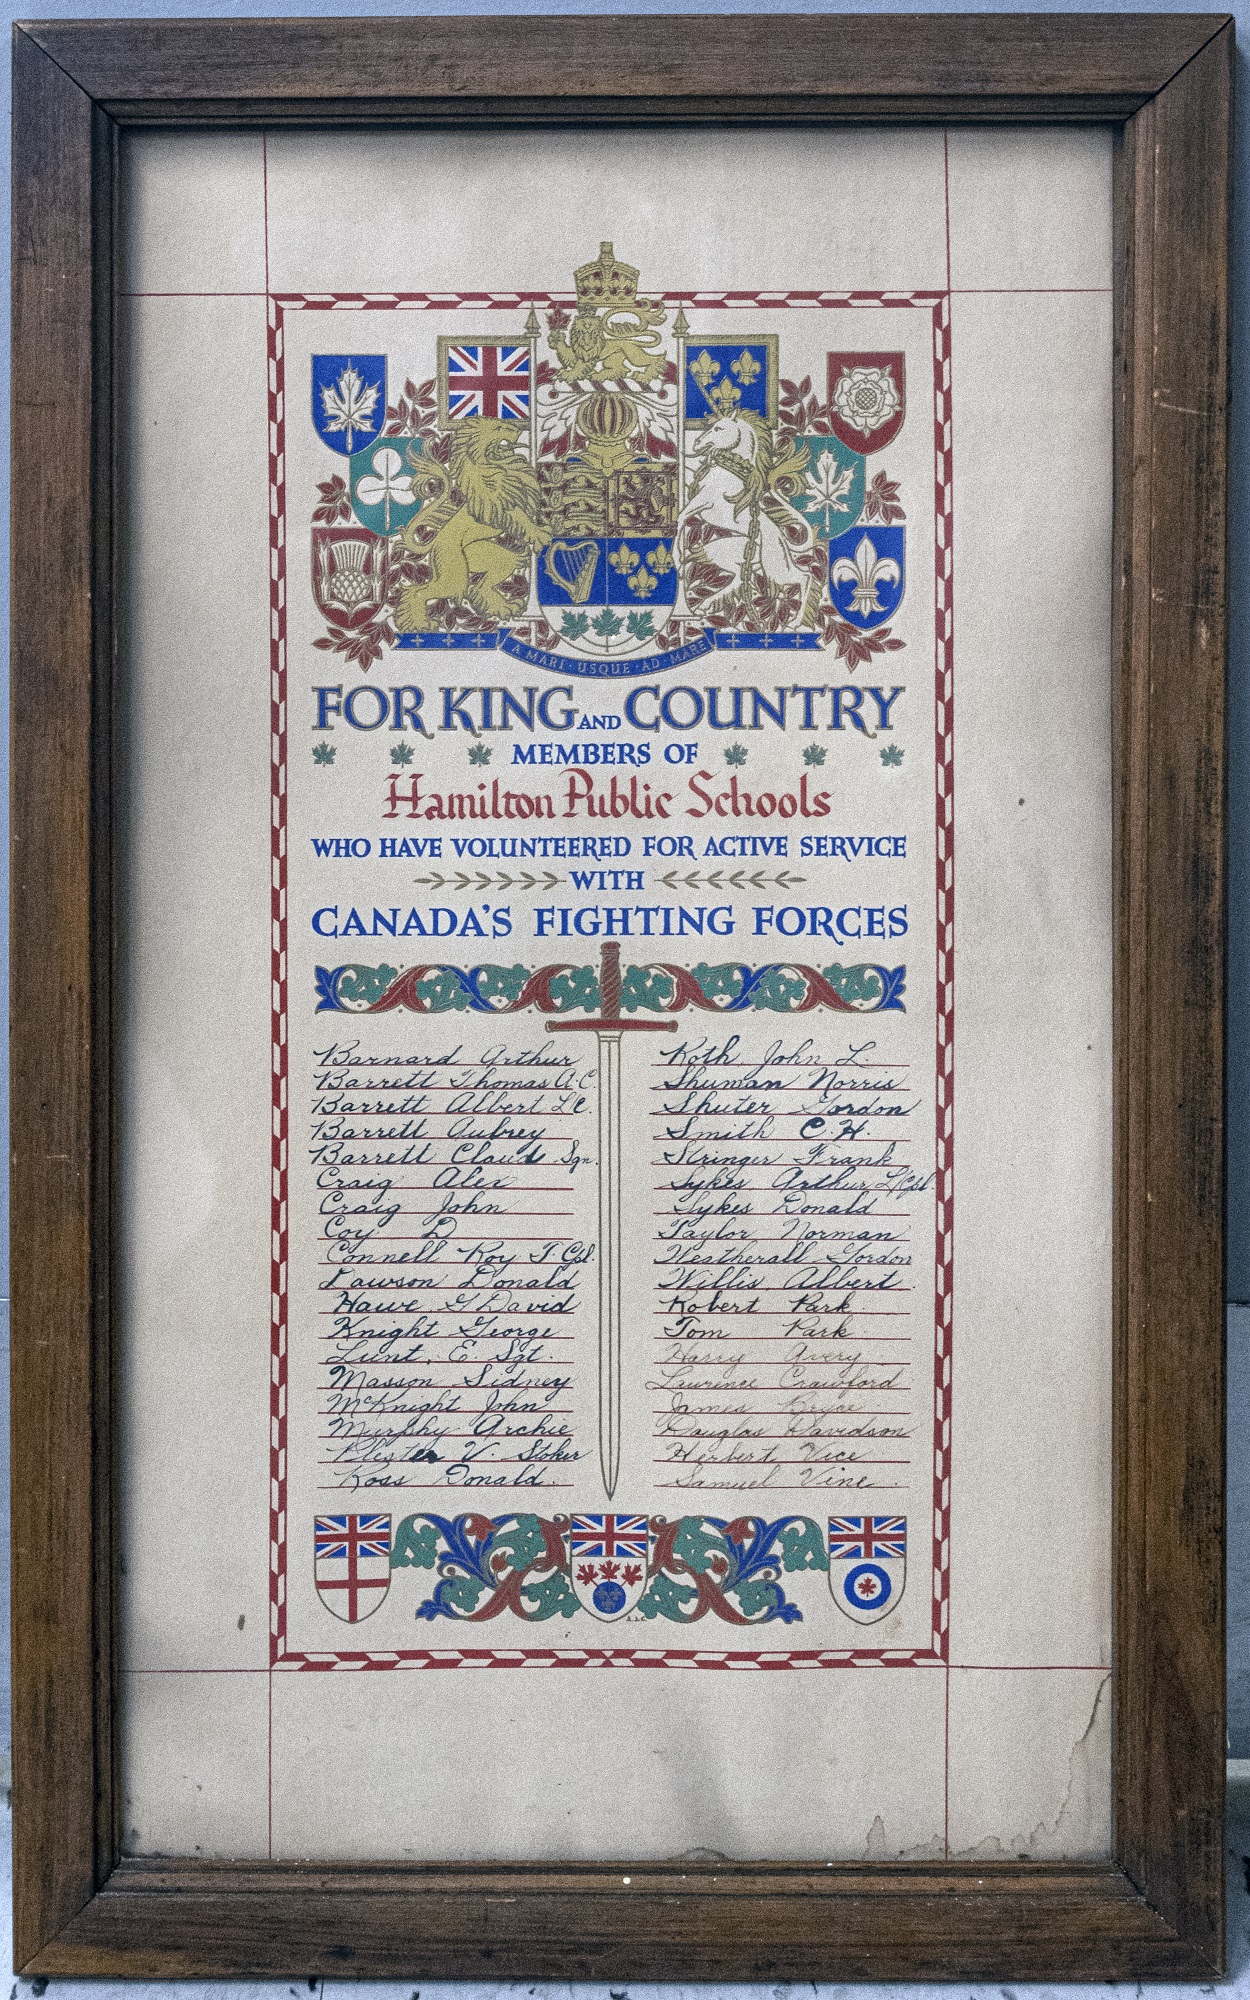 A MARI · USQUE · AD · MARE
FOR KING AND COUNTRY
MEMBERS OF
Hamilton Public Schools
WHO HAVE VOLUNTEERED FOR ACTIVE SERVICE
WITH
CANADA'S FIGHTING FORCES
Barnard Arthur
Barrett Thomas A.C.
Barrett Albert L/C.
Barrett Aubrey
Barrett Claud Sgn.
Craig Alex
Craig John
Coy D
Connell Roy T. Cpl.
Lawson Donald
Hawe G David
Knight George
Lunt, E. Sgt.
Masson Sidney
McKnight John
Murphy Archie
Plester V. Stoker
Ross Donald.
Roth, John L.
Shuman Norris
Shuter Gordon
Smith C. H.
Stringer Frank
Sykes Arthur L/Cpl.
Sykes Donald
Taylor Norman
Weatherall Gordon
Willis Albert.
Robert Park
Tom Park
Harry Avery
Laurence Crawford
James Bryce
Douglas Davidson
Herbert Vice
Samuel Vine
A.J.C.